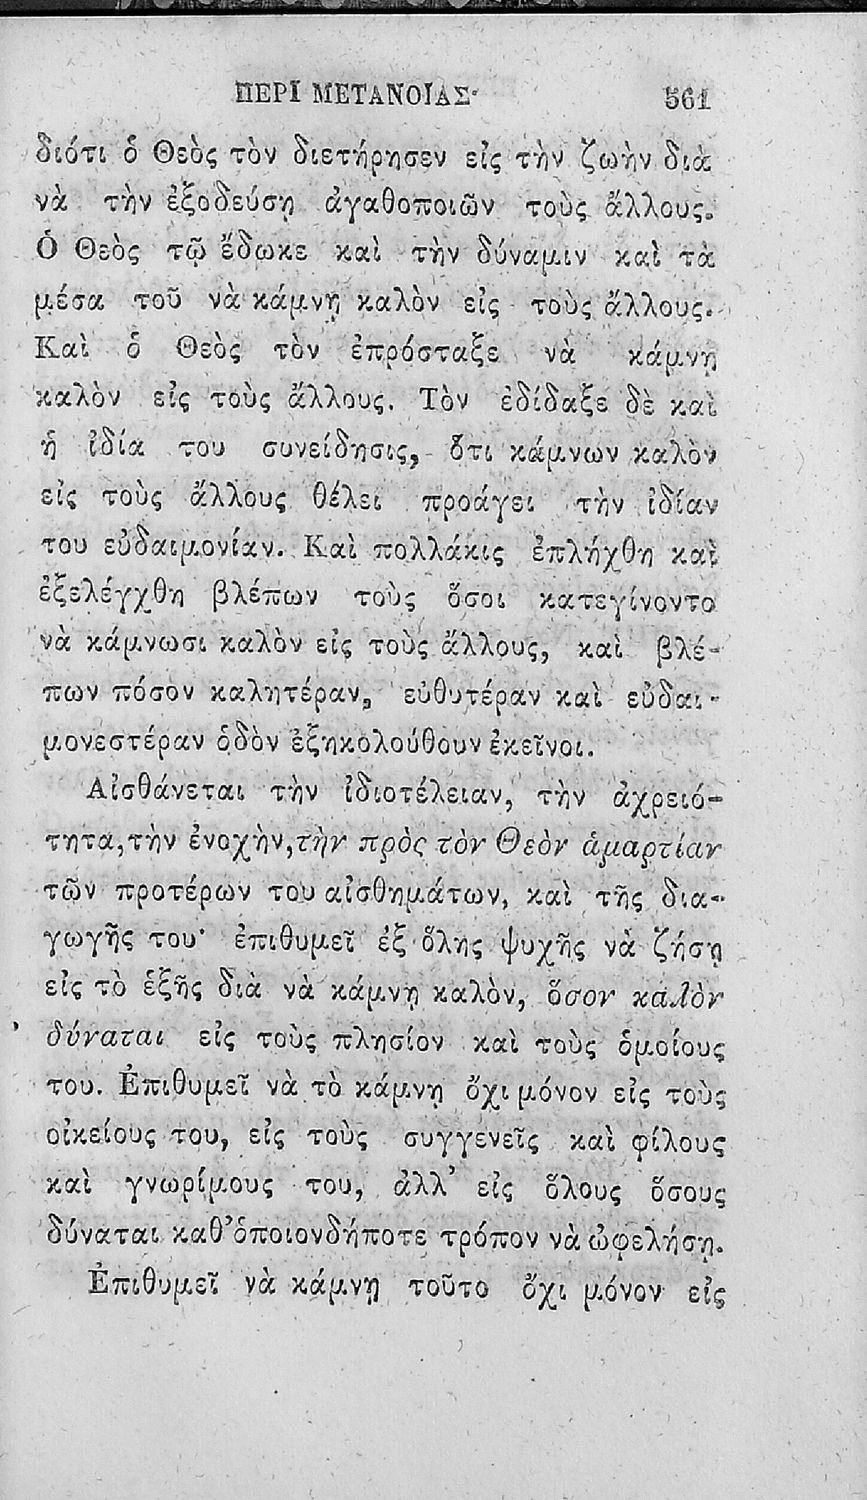 ΠΕΡΙ ΜΕΤΑΝΟΙΑΣ· 561
διότι ὁ Θεὸς τὸν διετήρησεν εἰς τὴν ζωὴν διὰ
νὰ τὴν ἐξοδεύσῃ ἀγαθοποιῶν τοὺς ἄλλους.
Ὁ Θεὸς τῷ ἔδωκε καὶ τὴν δύναμιν καὶ τὰ
μέσα τοῦ νὰ κάμνῃ καλὸν εἰς τοὺς ἄλλους.
Καὶ ὁ Θεὸς τὸν ἐπρόσταξε νὰ κάμνῃ
καλὸν εἰς τοὺς ἄλλους. Τὸν ἐδίδαξε δὲ καὶ
ἡ ἰδία του συνείδησις, ὅτι κάμνων καλὸν
εἰς τοὺς ἄλλους θέλει προάγει τὴν ἰδίαν
του εὐδαιμονίαν. Καὶ πολλάκις ἐπλήχθη καὶ
ἐξελέγχθη βλέπων τοὺς ὅσοι κατεγίνοντο
νὰ κάμνωσι καλὸν εἰς τοὺς ἄλλους, καὶ βλέ-
πων πόσον καλητέραν, εὐθυτέραν καὶ εὐδαι-
μονεστέραν ὁδὸν ἐξηκολούθουν ἐκεῖνοι.
Αἰσθάνεται τὴν ἰδιοτέλειαν, τὴν ἀχρειό-
τητα, τὴν ἐνοχὴν, τὴν πρὸς τὸν Θεὸν ἁμαρτίαν
τῶν προτέρων του αἰσθημάτων, καὶ τῆς δια-
γωγῆς του· ἐπιθυμεῖ ἐξ ὅλης ψυχῆς νὰ ζήσῃ
εἰς τὸ ἑξῆς διὰ νὰ κάμνῃ καλὸν, ὅσον καλὸν
δύναται εἰς τοὺς πλησίον καὶ τοὺς ὁμοίους
του. Ἐπιθυμεῖ νὰ τὸ κάμνῃ ὄχι μόνον εἰς τοὺς
οἰκείους του, εἰς τοὺς συγγενεῖς καὶ φίλους
καὶ γνωρίμους του, ἀλλ' εἰς ὅλους ὅσους
δύναται καθ' ὁποιονδήποτε τρόπον νὰ ὠφελήσῃ.
Ἐπιθυμεῖ νὰ κάμνῃ τοῦτο ὄχι μόνον εἰς